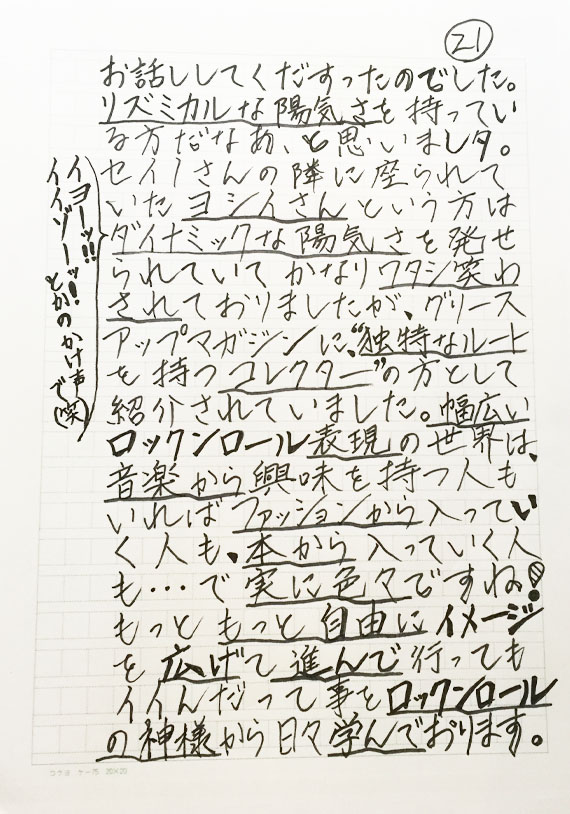 21
お話ししてくだすったのでした。
リズミカルな陽気さを持ってい
る方だなあ、と思いましタ。
セイノさんの隣に座られて
いたヨシイさんという方は
ダイナミックな陽気さを発せ
られていてかなりワタシ笑わ
されておりましたが、グリース
アップマガジンに、“独特なルート
を持つコレクター”の方として
紹介されていました。幅広い
ロックンロール表現の世界は、
音楽から興味を持つ人も
いればファッションから入ってい
く人も、本から入っていく人
も…で実に色々ですね!
もっともっと自由にイメージ
を広げて進んで行っても
イイんだって事をロックンロール
の神様から日々学んでおります。
イヨーッ!!
イイゾーッ!
とかのかけ声で(笑)
コクヨ ケー75 20×20